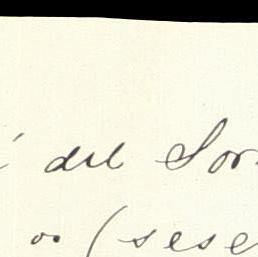 del Sor
oo (sese